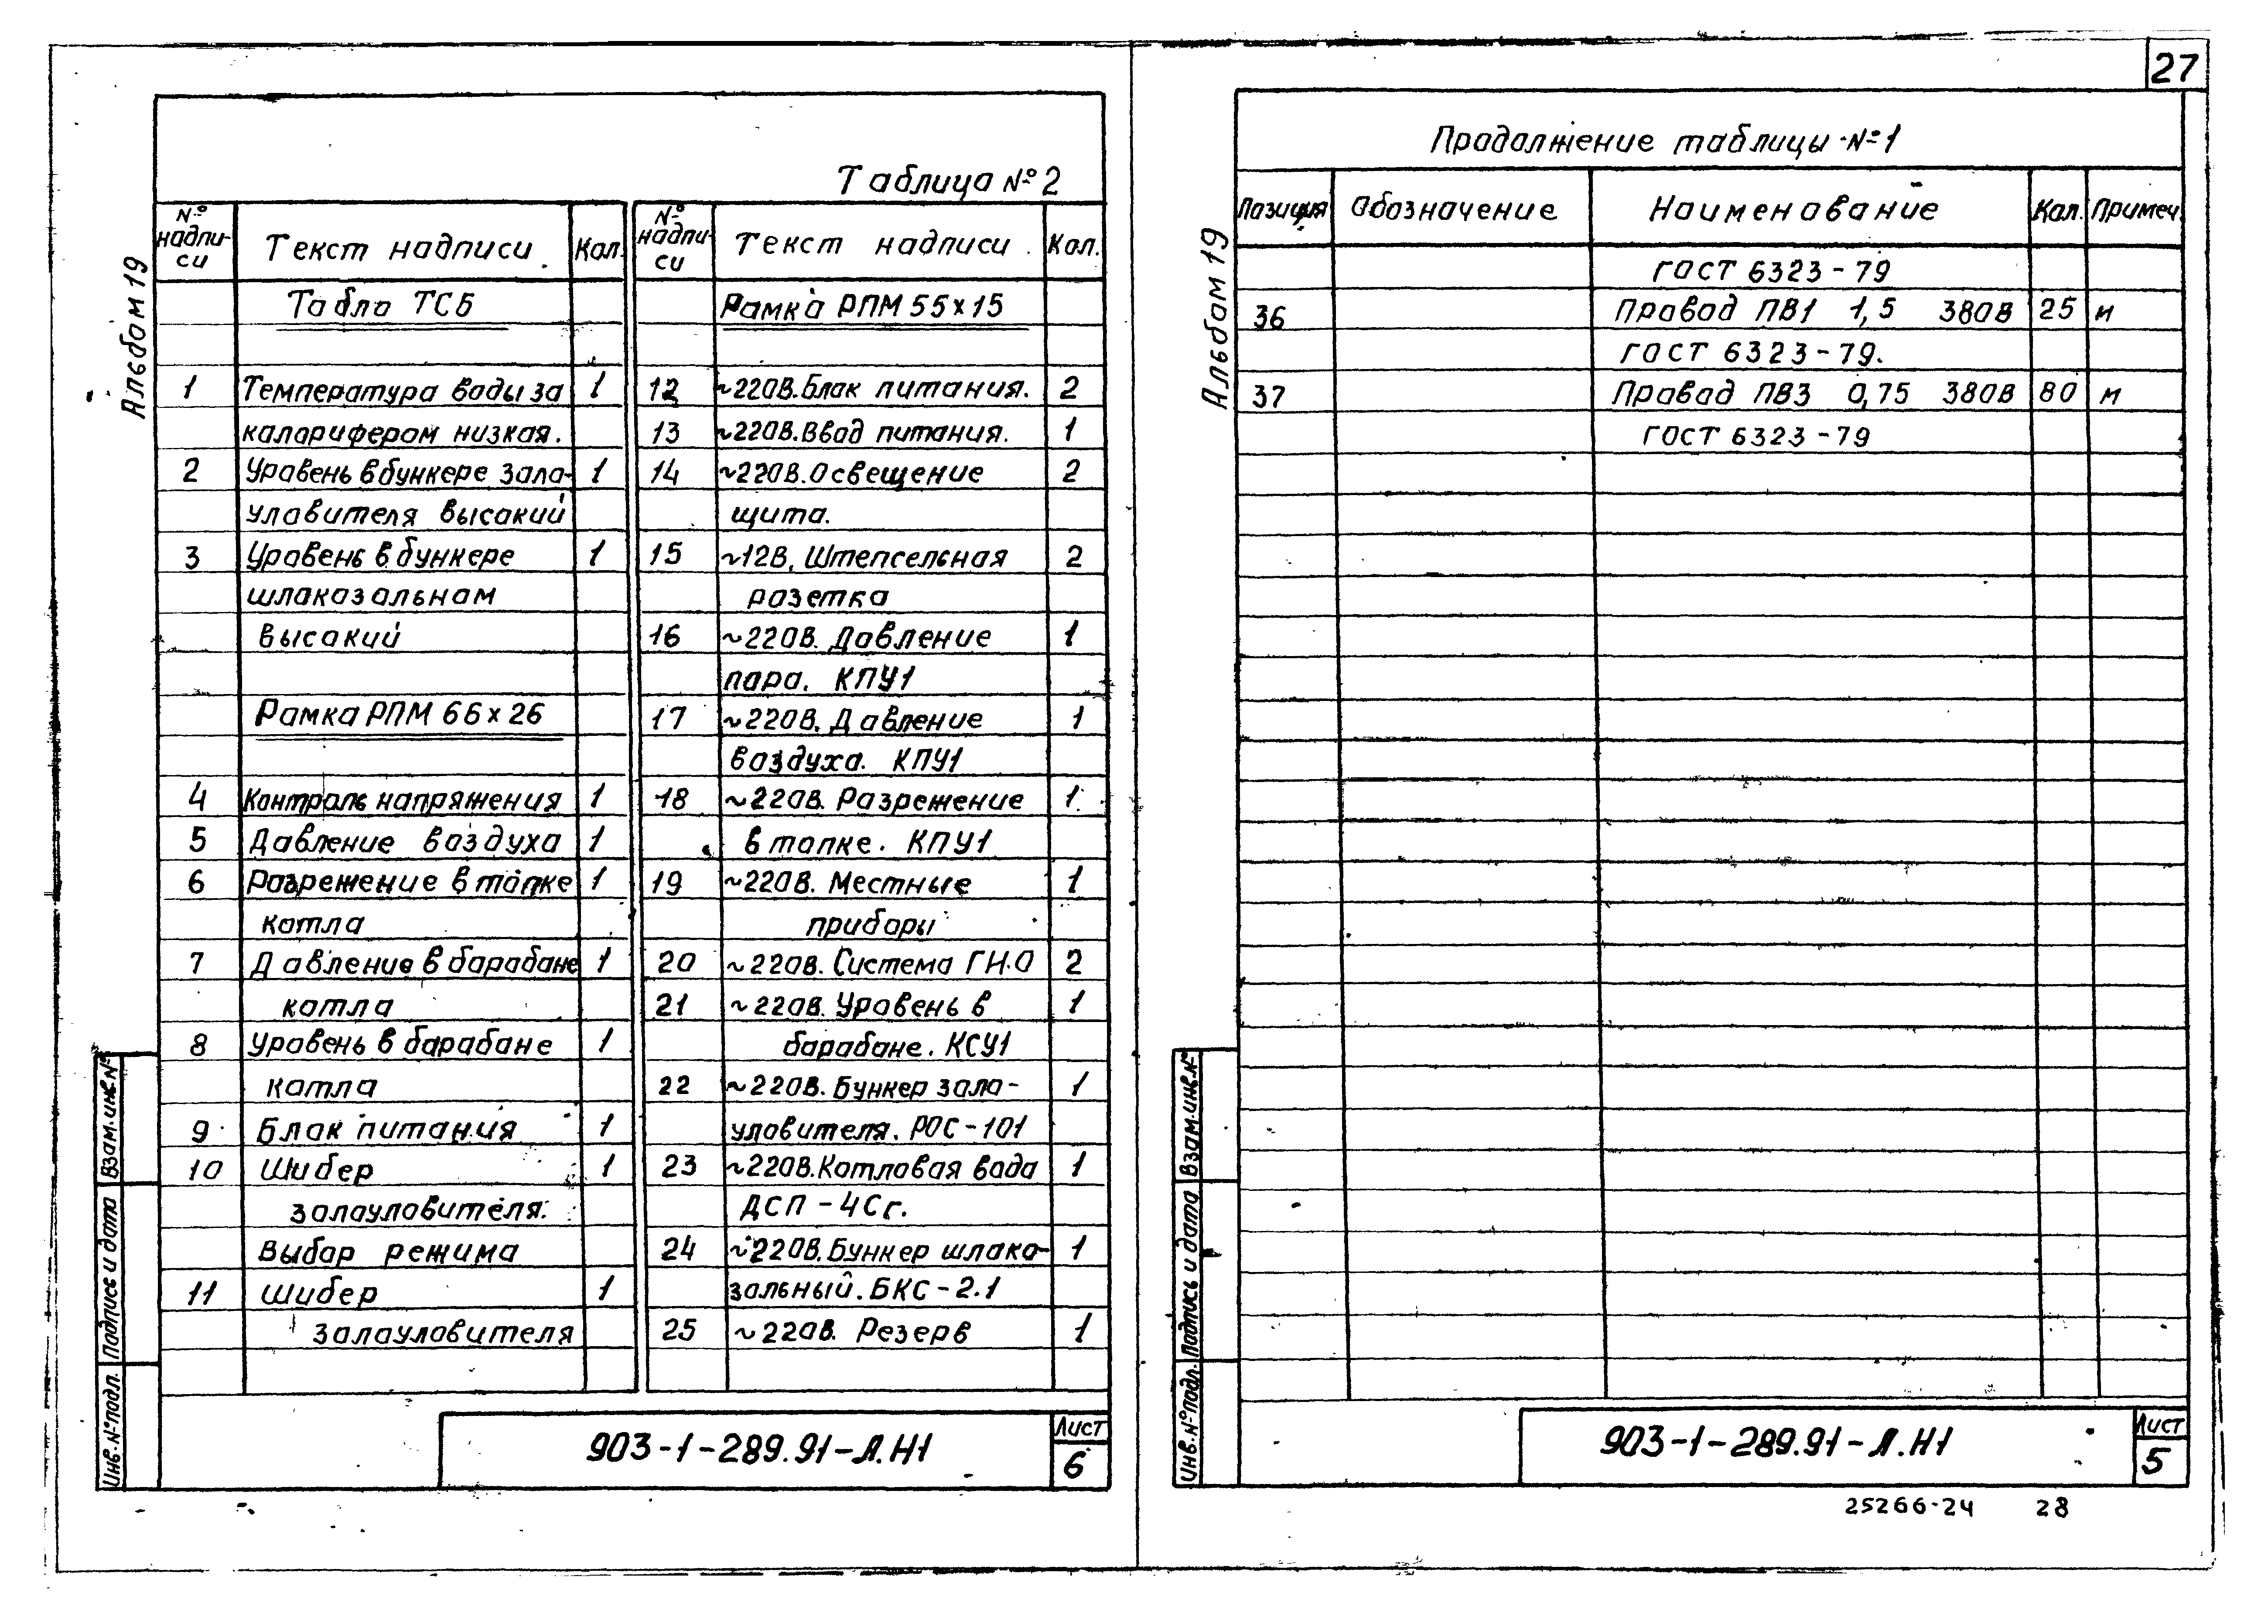 27
Альбом 19
Таблица №2
№ надпи- си Текст надписи Кол. № надпи- си Текст надписи Кол.
Табло ТСБ Рамка РПМ 55х15
1 Температура воды за 1 12 ~220В. Блок питания. 2
калорифером низкая. 13 ~220В. Ввод питания. 1
2 Уровень в бункере золо- 1 14 ~220В. Освещение 2
уловителя высокий щита.
3 Уровень в бункере 1 15 ~12В. Штепсельная 2
шлакозольном розетка
высокий 16 ~220В. Давление 1
пара. КПУ1
Рамка РПМ 66х26 17 ~220В. Давление 1
воздуха. КПУ1
4 Контроль напряжения 1 18 ~220В. Разрежение 1
5 Давление воздуха 1 в топке. КПУ1
6 Разрежение в топке 1 19 ~220В. Местные 1
котла приборы
7 Давление в барабане 1 20 ~220В. Система ГН.О 2
котла 21 ~220В. Уровень в 1
8 Уровень в барабане 1 барабане. КСУ1
котла 22 ~220В. Бункер золо- 1
9 Блок питания 1 уловителя. РОС-101
10 Шибер 1 23 ~220В. Котловая вода 1
золоуловителя. ДСП-4Сг.
Выбор режима 24 ~220В. Бункер шлако- 1
11 Шибер 1 зольный. БКС-2.1
золоуловителя 25 ~220В. Резерв 1
Инв. № подл. Подпись и дата Взам. инв. №
903-1-289.91-Л.Н1
Лист
6
Альбом 19
Продолжение таблицы №1
Позиция Обозначение Наименование Кол. Примеч.
ГОСТ 6323-79
36 Провод ПВ1 1,5 380В 25 м
ГОСТ 6323-79.
37 Провод ПВ3 0,75 380В 80 м
ГОСТ 6323-79
Инв. № подл. Подпись и дата Взам. инв. №
903-1-289.91-Л.Н1
Лист
5
25266-24 28